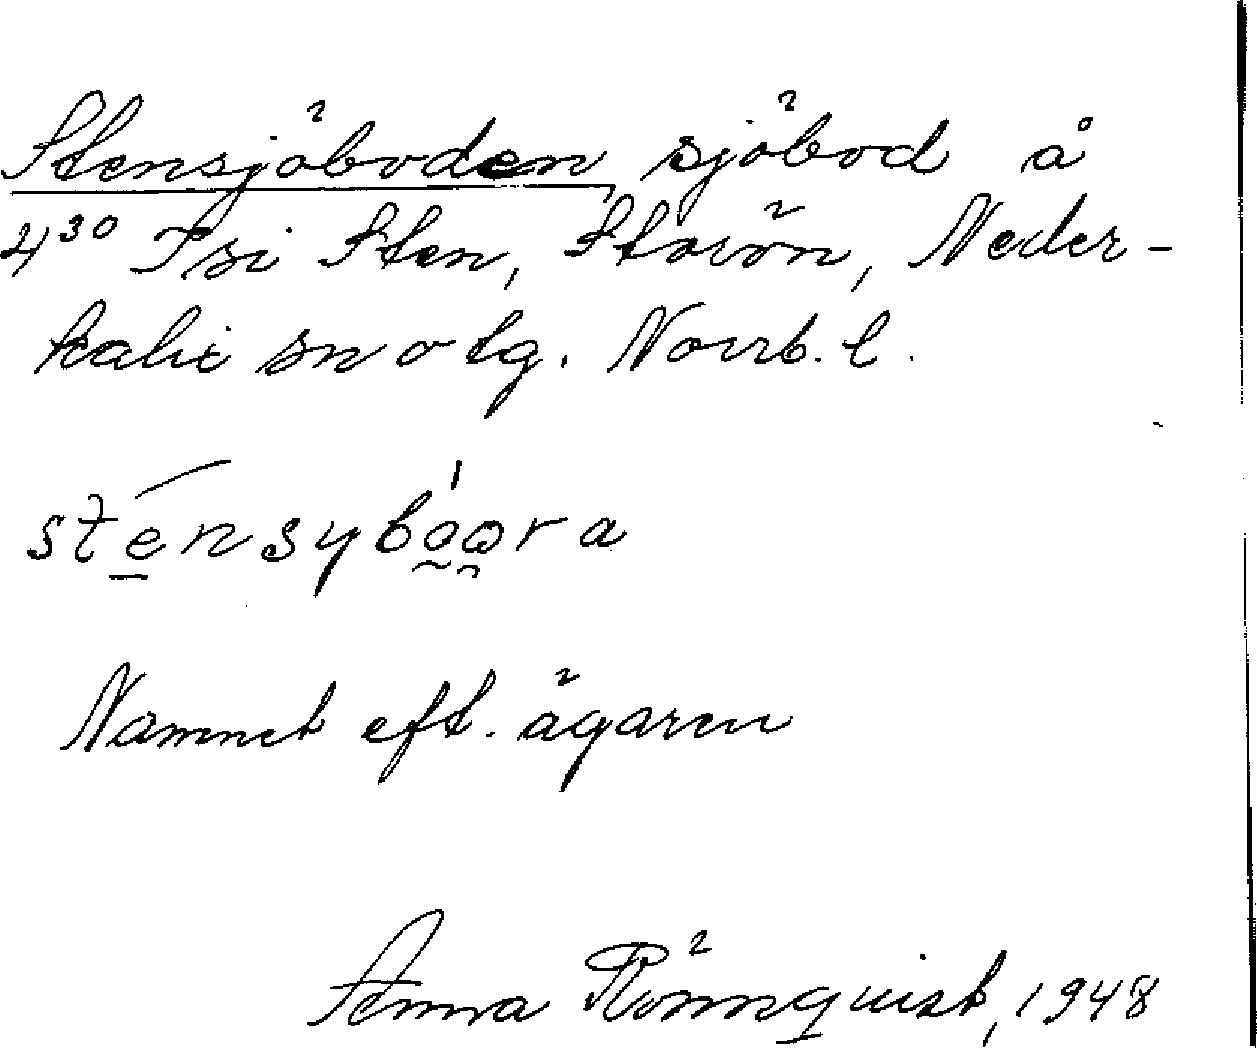 Stensjöboden, sjöbod å
4³⁰ Isi Sten, Storön, Neder-
kalix sn o tg. Norrb. l.
sténsybóo̯ra
Namnet eft. ägaren
Anna Rönnquist, 1948